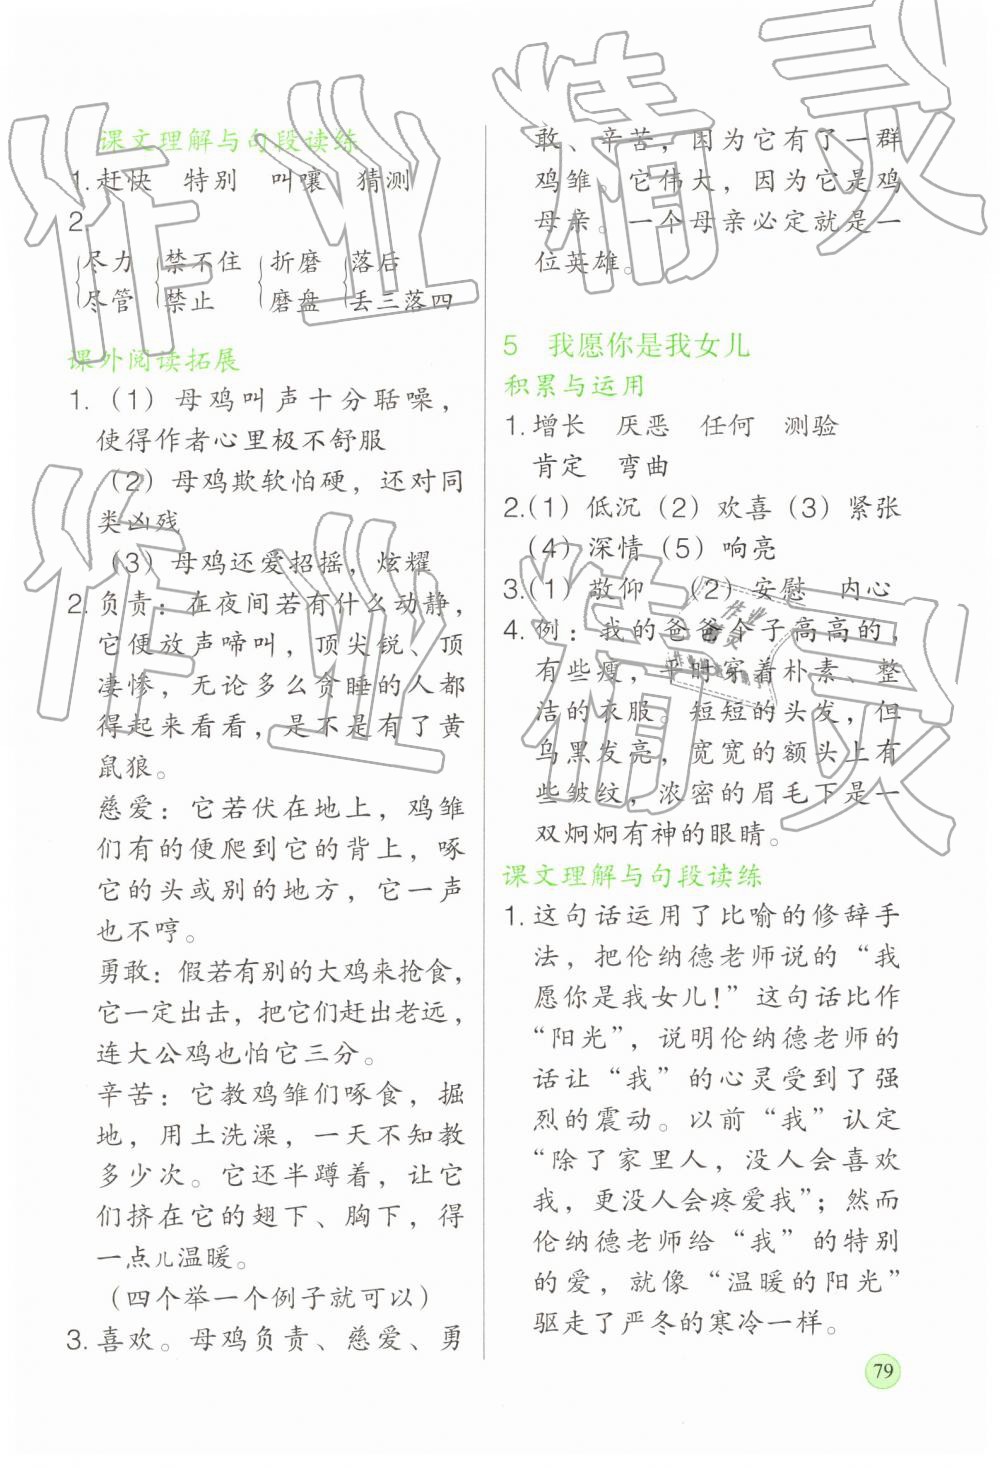 课文理解与句段读练
1. 赶快 特别 叫嚷 猜测
2.
尽力 禁不住 折磨 落后
尽管 禁止 磨盘 丢三落四
课外阅读拓展
1.（1）母鸡叫声十分聒噪，
使得作者心里极不舒服
（2）母鸡欺软怕硬，还对同
类凶残
（3）母鸡还爱招摇，炫耀
2. 负责：在夜间若有什么动静，
它便放声啼叫，顶尖锐、顶
凄惨，无论多么贪睡的人都
得起来看看，是不是有了黄
鼠狼。
慈爱：它若伏在地上，鸡雏
们有的便爬到它的背上，啄
它的头或别的地方，它一声
也不哼。
勇敢：假若有别的大鸡来抢食，
它一定出击，把它们赶出老远，
连大公鸡也怕它三分。
辛苦：它教鸡雏们啄食，掘
地，用土洗澡，一天不知教
多少次。它还半蹲着，让它
们挤在它的翅下、胸下，得
一点儿温暖。
（四个举一个例子就可以）
3. 喜欢。母鸡负责、慈爱、勇
敢、辛苦，因为它有了一群
鸡雏。它伟大，因为它是鸡
母亲。一个母亲必定就是一
位英雄。
5 我愿你是我女儿
积累与运用
1. 增长 厌恶 任何 测验
肯定 弯曲
2.（1）低沉（2）欢喜（3）紧张
（4）深情（5）响亮
3.（1）敬仰 （2）安慰 内心
4. 例：我的爸爸个子高高的，
有些瘦，平时穿着朴素、整
洁的衣服。短短的头发，但
乌黑发亮，宽宽的额头上有
些皱纹，浓密的眉毛下是一
双炯炯有神的眼睛。
课文理解与句段读练
1. 这句话运用了比喻的修辞手
法，把伦纳德老师说的“我
愿你是我女儿！”这句话比作
“阳光”，说明伦纳德老师的
话让“我”的心灵受到了强
烈的震动。以前“我”认定
“除了家里人，没人会喜欢
我，更没人会疼爱我”；然而
伦纳德老师给“我”的特别
的爱，就像“温暖的阳光”
驱走了严冬的寒冷一样。
79
作业精灵
作业精灵